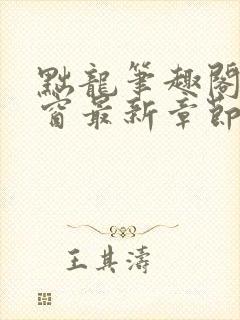 點龍筆趣閣
窗最新章節
王其濤